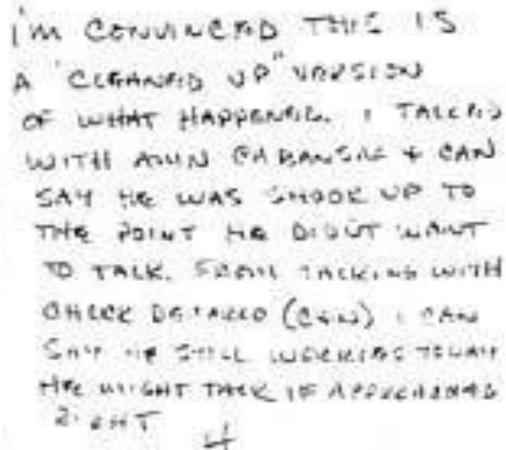 I'M CONVINCED THIS IS
A "CLEANED UP" VERSION
OF WHAT HAPPENED. I TALKED
WITH & CAN
SAY HE WAS SHOOK UP TO
THE POINT HE DIDN'T WANT
TO TALK. FROM TALKING WITH
(C&W) I CAN
SAY HE STILL WORKING TODAY
HE MIGHT TALK IF APPROACHED
RIGHT
4